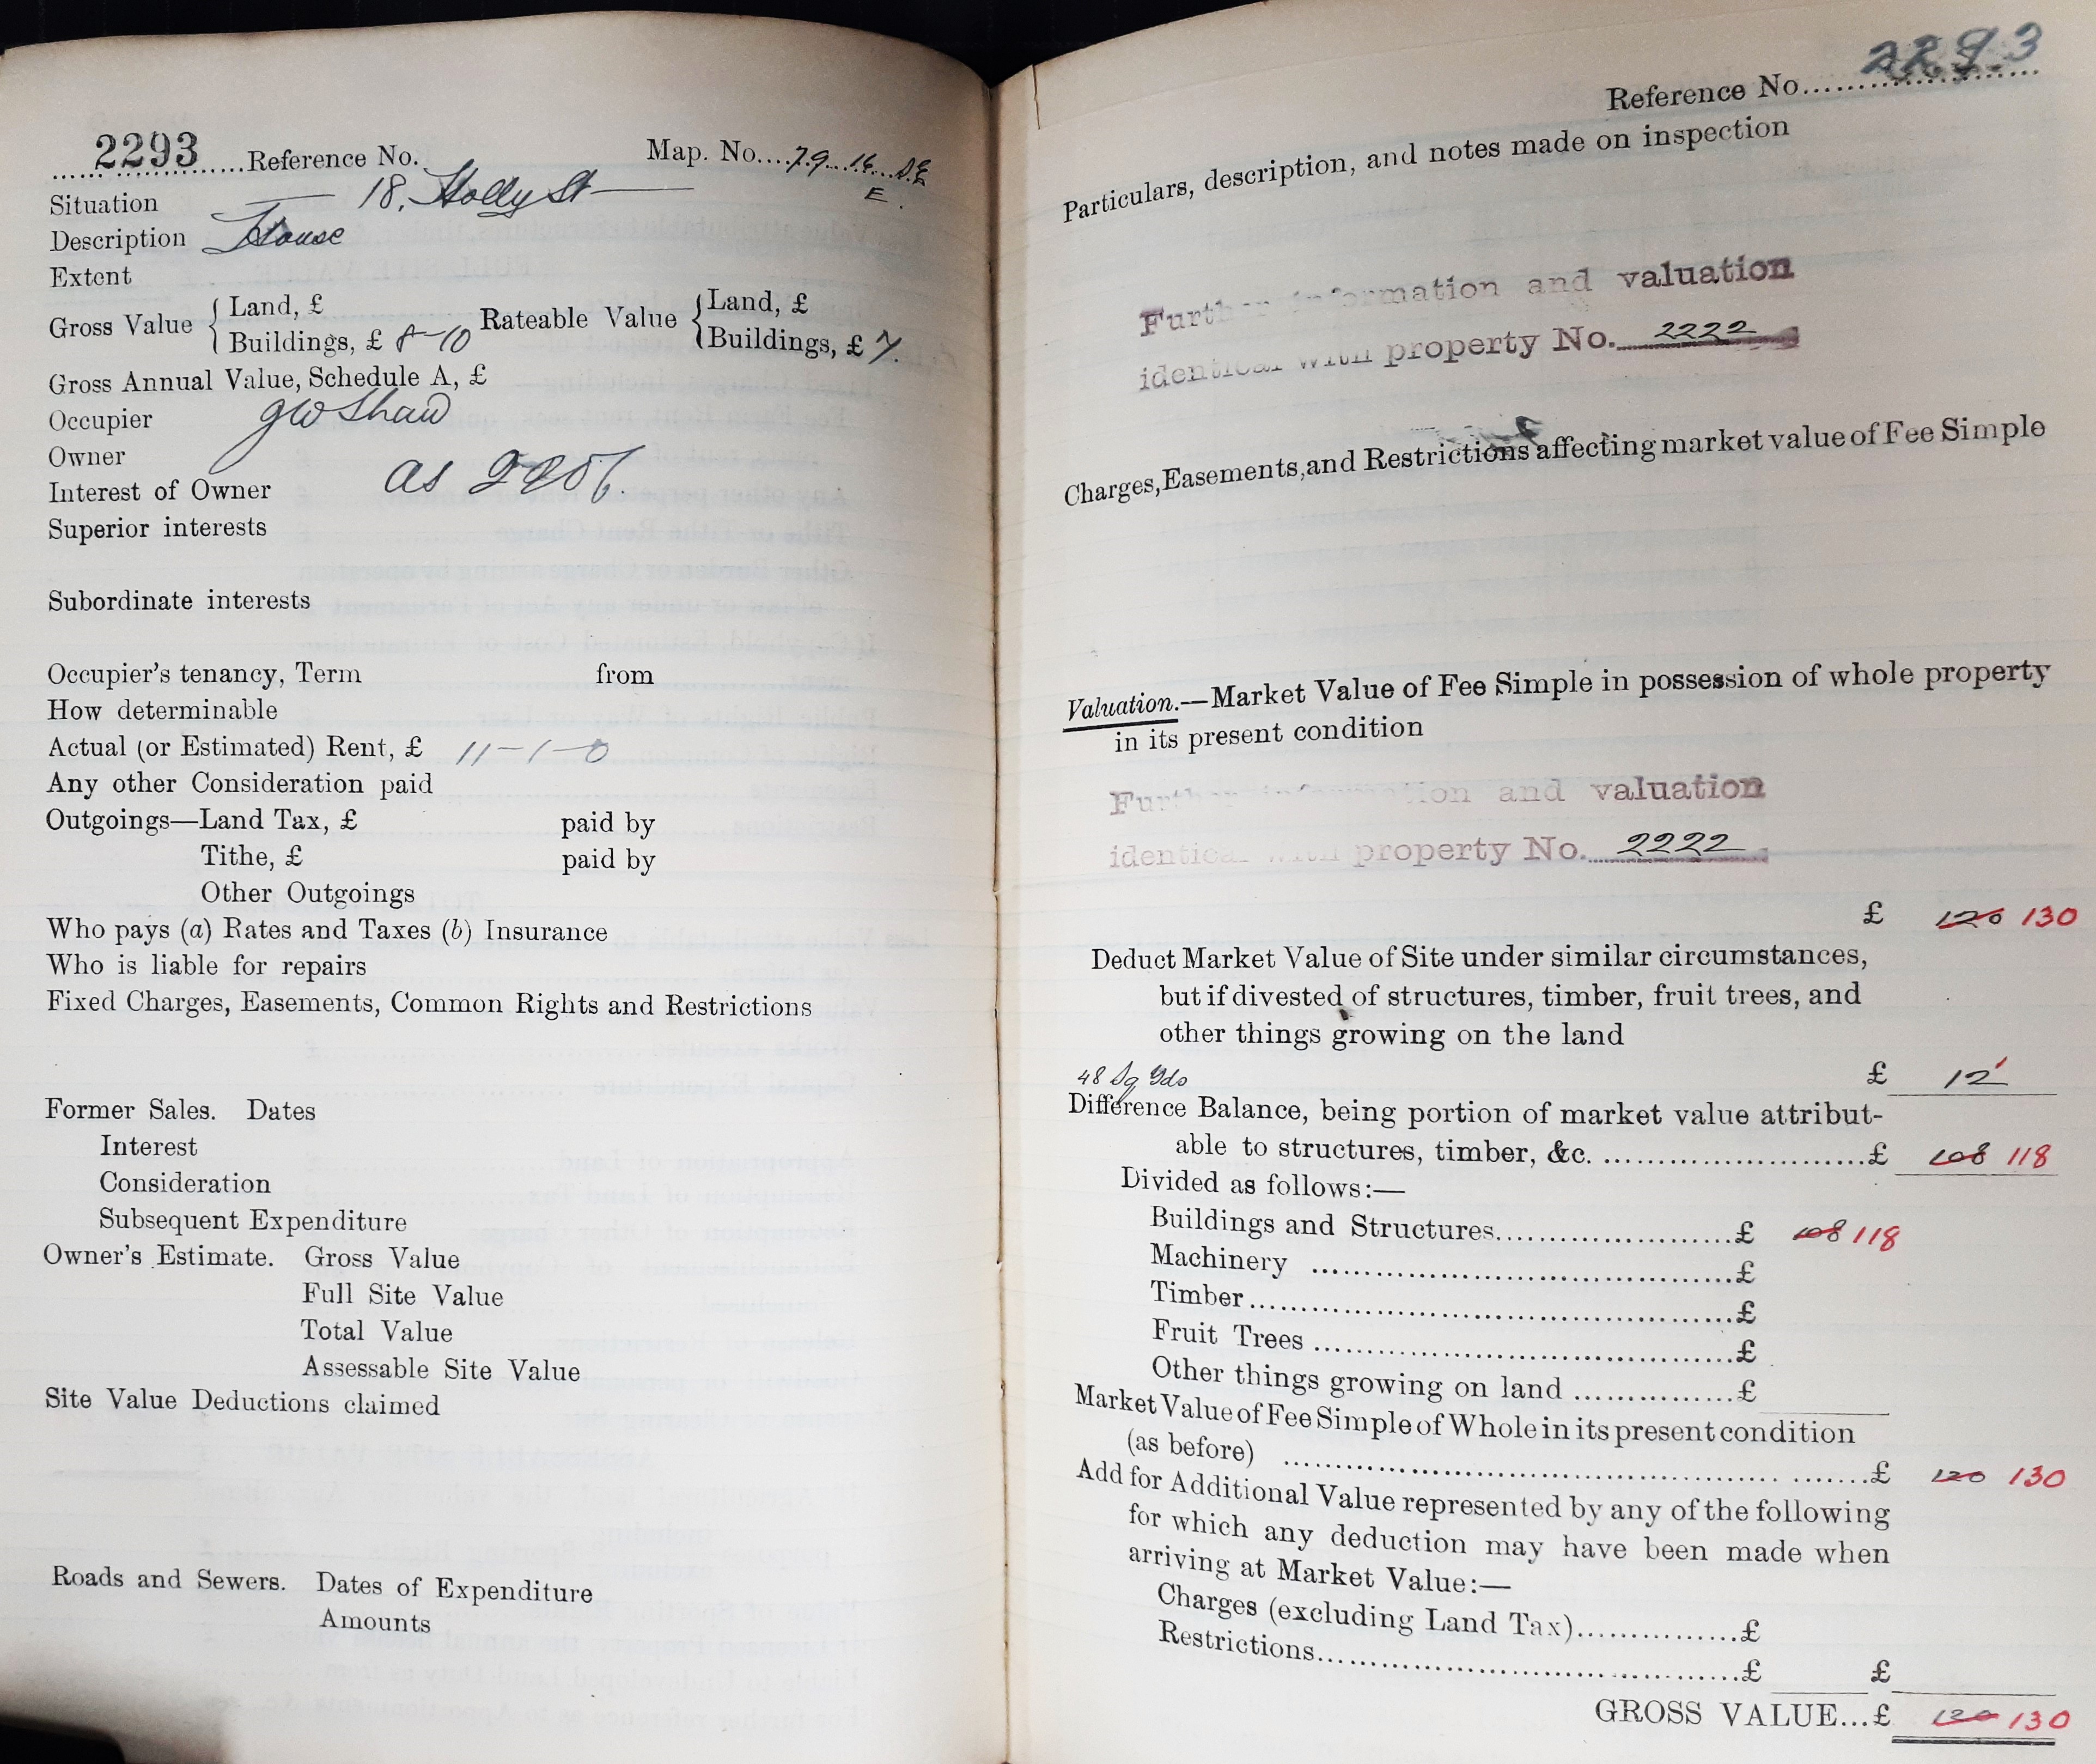 2293 Reference No. Map. No. 79 16 S.E
E.
Situation 18, Holly St
Description House
Extent
Gross Value { Land, £ Rateable Value { Land, £
Buildings, £ 8-10 Buildings, £ 7.
Gross Annual Value, Schedule A, £
Occupier G W Shaw
Owner
Interest of Owner as
Superior interests
Subordinate interests
Occupier's tenancy, Term from
How determinable
Actual (or Estimated) Rent, £ 11-1-0
Any other Consideration paid
Outgoings—Land Tax, £ paid by
Tithe, £ paid by
Other Outgoings
Who pays (a) Rates and Taxes (b) Insurance
Who is liable for repairs
Fixed Charges, Easements, Common Rights and Restrictions
Former Sales. Dates
Interest
Consideration
Subsequent Expenditure
Owner's Estimate. Gross Value
Full Site Value
Total Value
Assessable Site Value
Site Value Deductions claimed
Roads and Sewers. Dates of Expenditure
Amounts
Reference No. 2293
Particulars, description, and notes made on inspection
Further information and valuation
identical with property No. 2222
Charges, Easements, and Restrictions affecting market value of Fee Simple
Valuation.—Market Value of Fee Simple in possession of whole property
in its present condition
Further information and valuation
identical with property No. 2222
£ 120 130
Deduct Market Value of Site under similar circumstances,
but if divested of structures, timber, fruit trees, and
other things growing on the land
48 Sq Yds £ 12
Difference Balance, being portion of market value attribut-
able to structures, timber, &c. £ 108 118
Divided as follows:—
Buildings and Structures £ 108 118
Machinery £
Timber £
Fruit Trees £
Other things growing on land £
Market Value of Fee Simple of Whole in its present condition
(as before) £ 120 130
Add for Additional Value represented by any of the following
for which any deduction may have been made when
arriving at Market Value:—
Charges (excluding Land Tax) £
Restrictions £ £
GROSS VALUE...£ 120 130